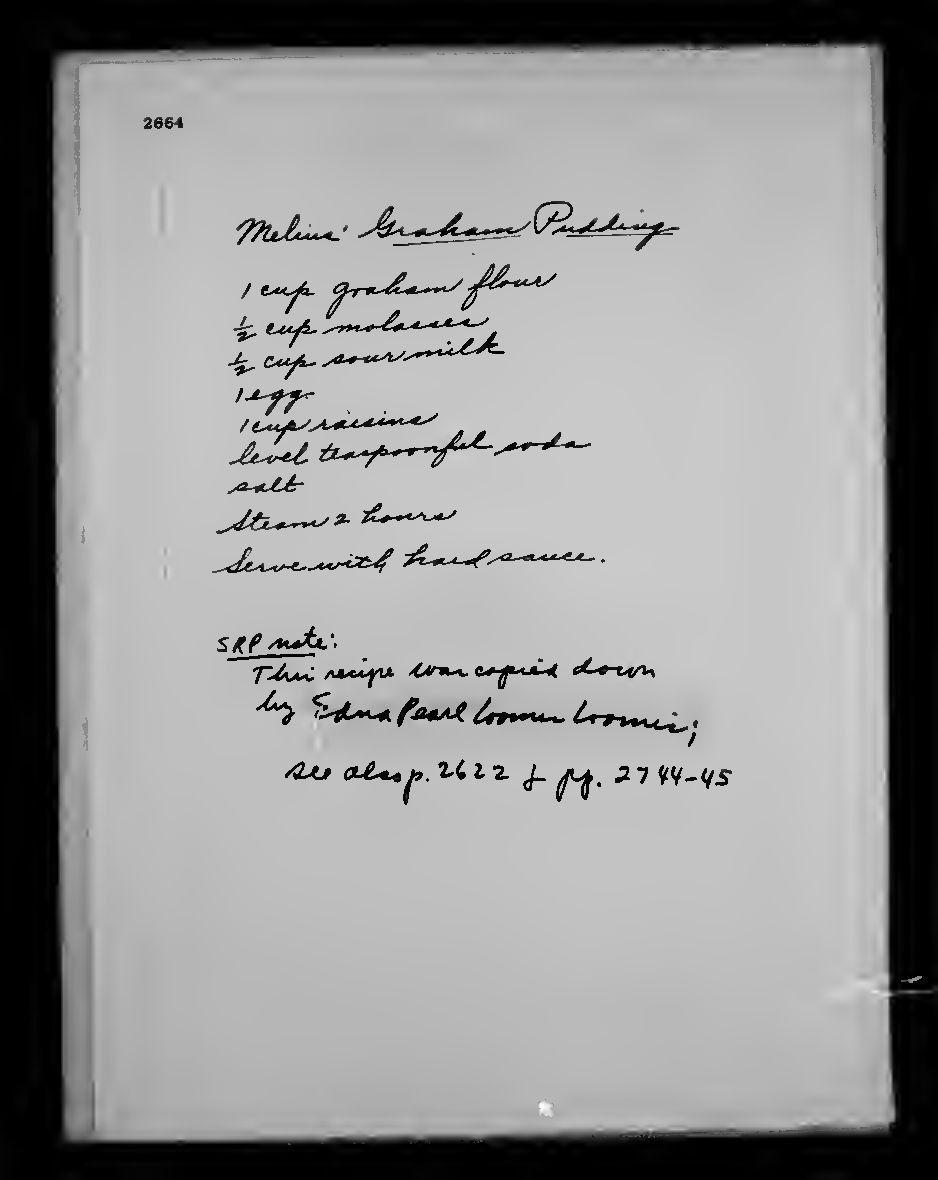 2664
Melius' Graham Pudding
1 cup graham flour
½ cup molasses
½ cup sour milk
1 egg
1 cup raisins
level teaspoonful soda
salt
Steam 2 hours
Serve with hard sauce.
SRP note:
This recipe was copied down
by Edna Pearl Loomer Loomis;
see also p. 2622 & pp. 2744-45